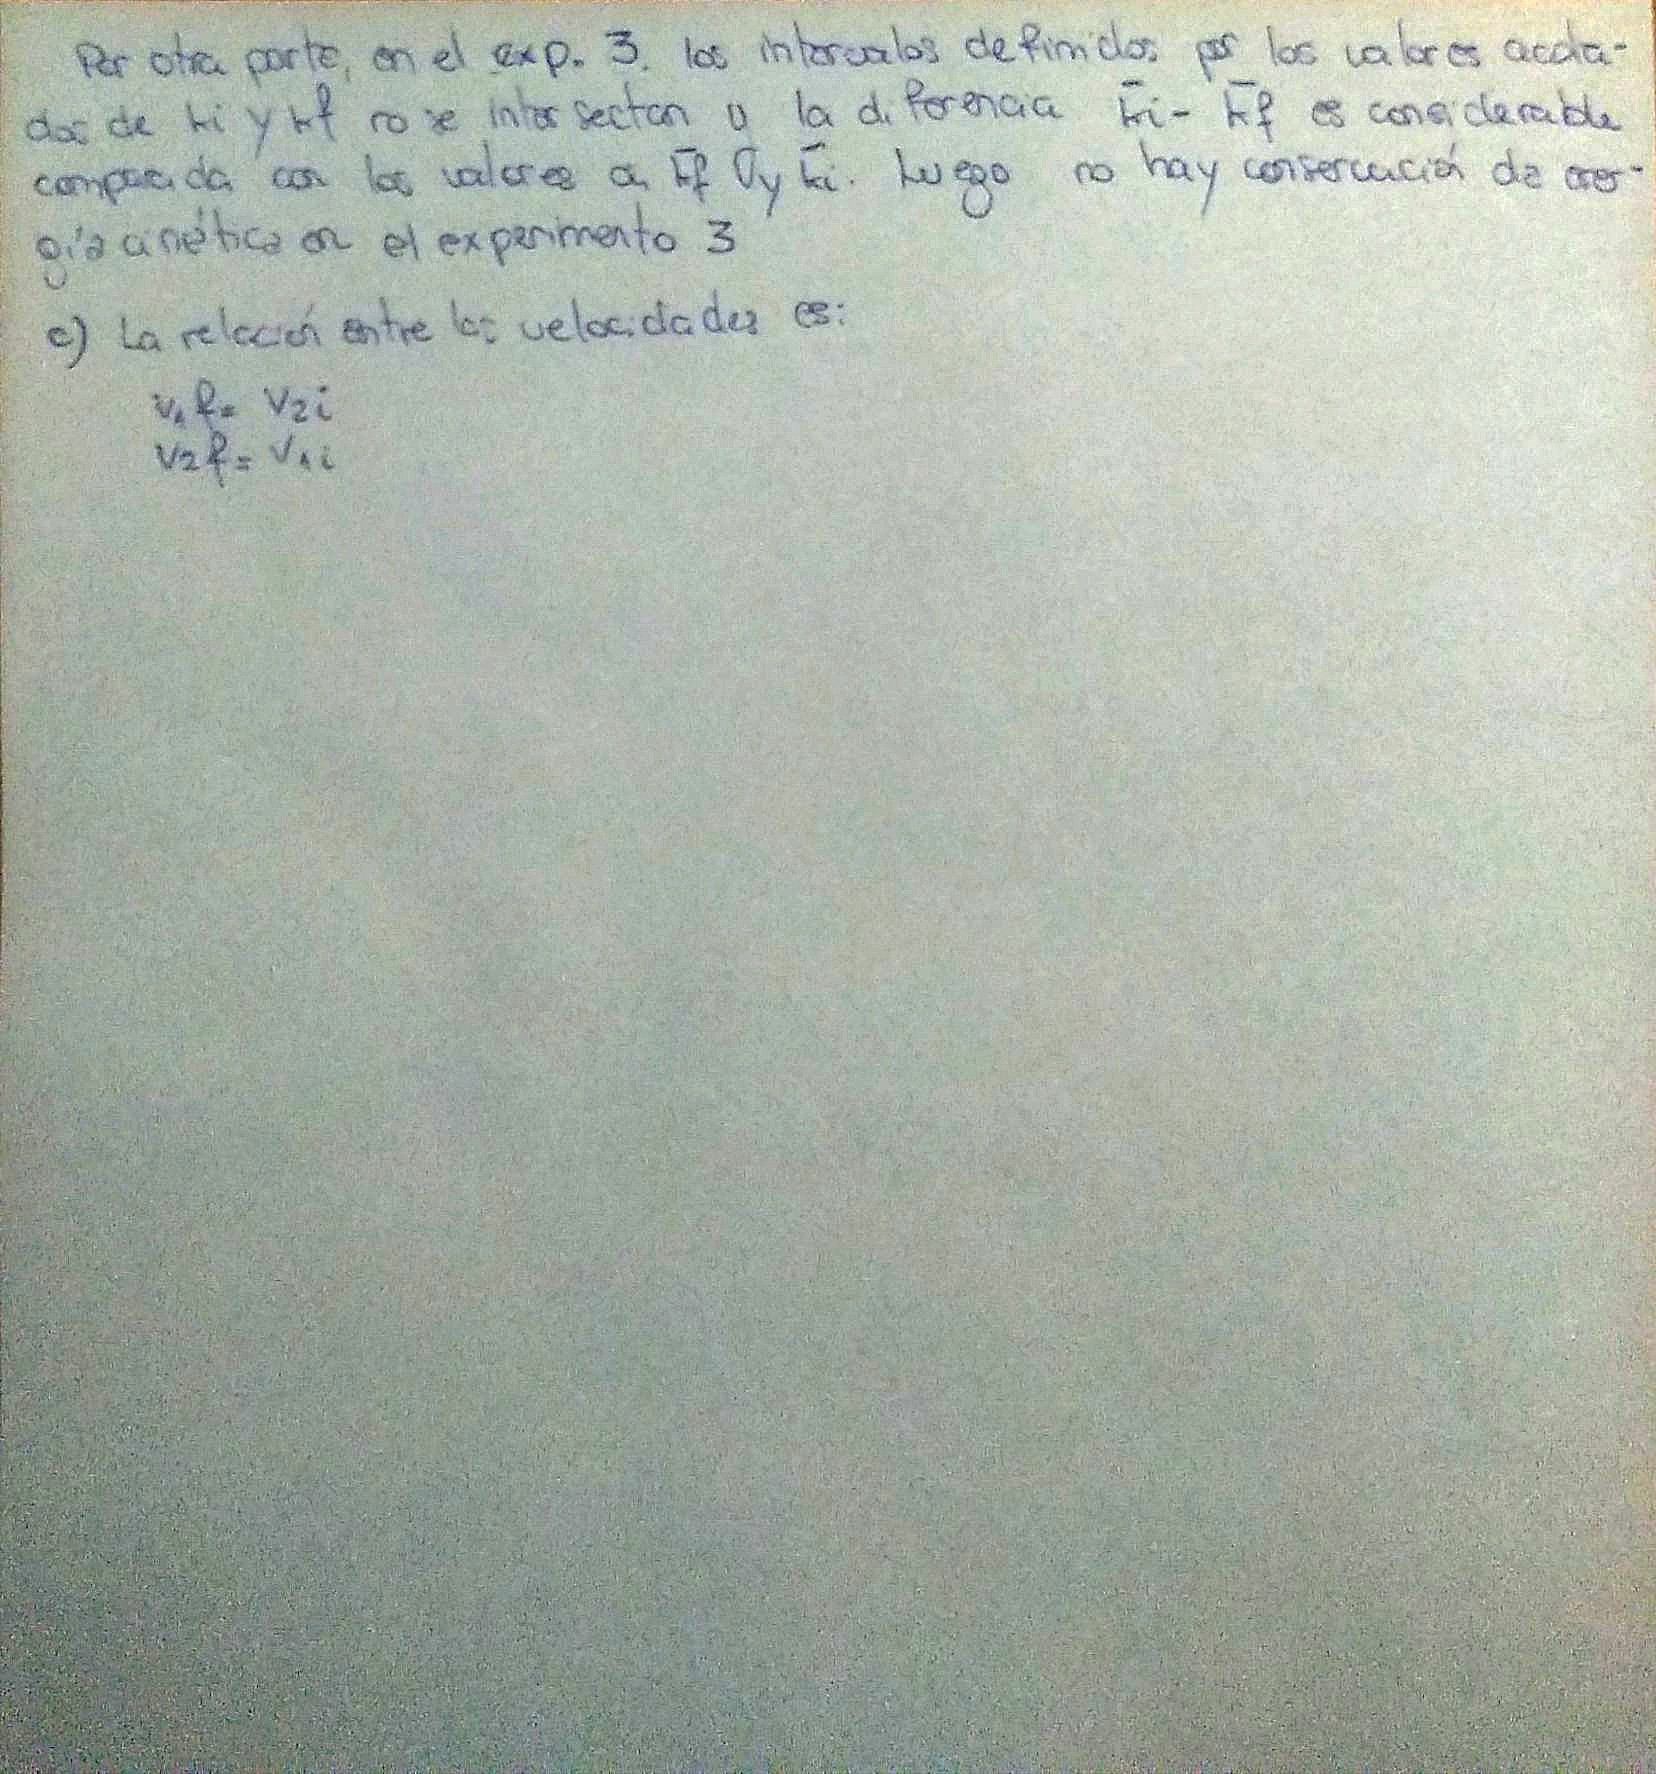 Por otra parte, en el exp. 3. los intervalos definidos por los valores acota-
dos de ki y kf no se intersectan y la diferencia k̄i - k̄f es considerable
comparada con los valores a k̄f y k̄i. Luego no hay conservación de ener-
gía cinética en el experimento 3
c) La relación entre las velocidades es:
v₁f = v₂i
v₂f = v₁i